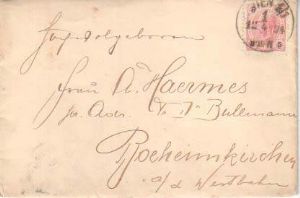 Hochwolgeboren
Frau A. Haermes
p. Adr. Dr Bullmann
Boeheimkirchen
a/d Westbahn
WIEN